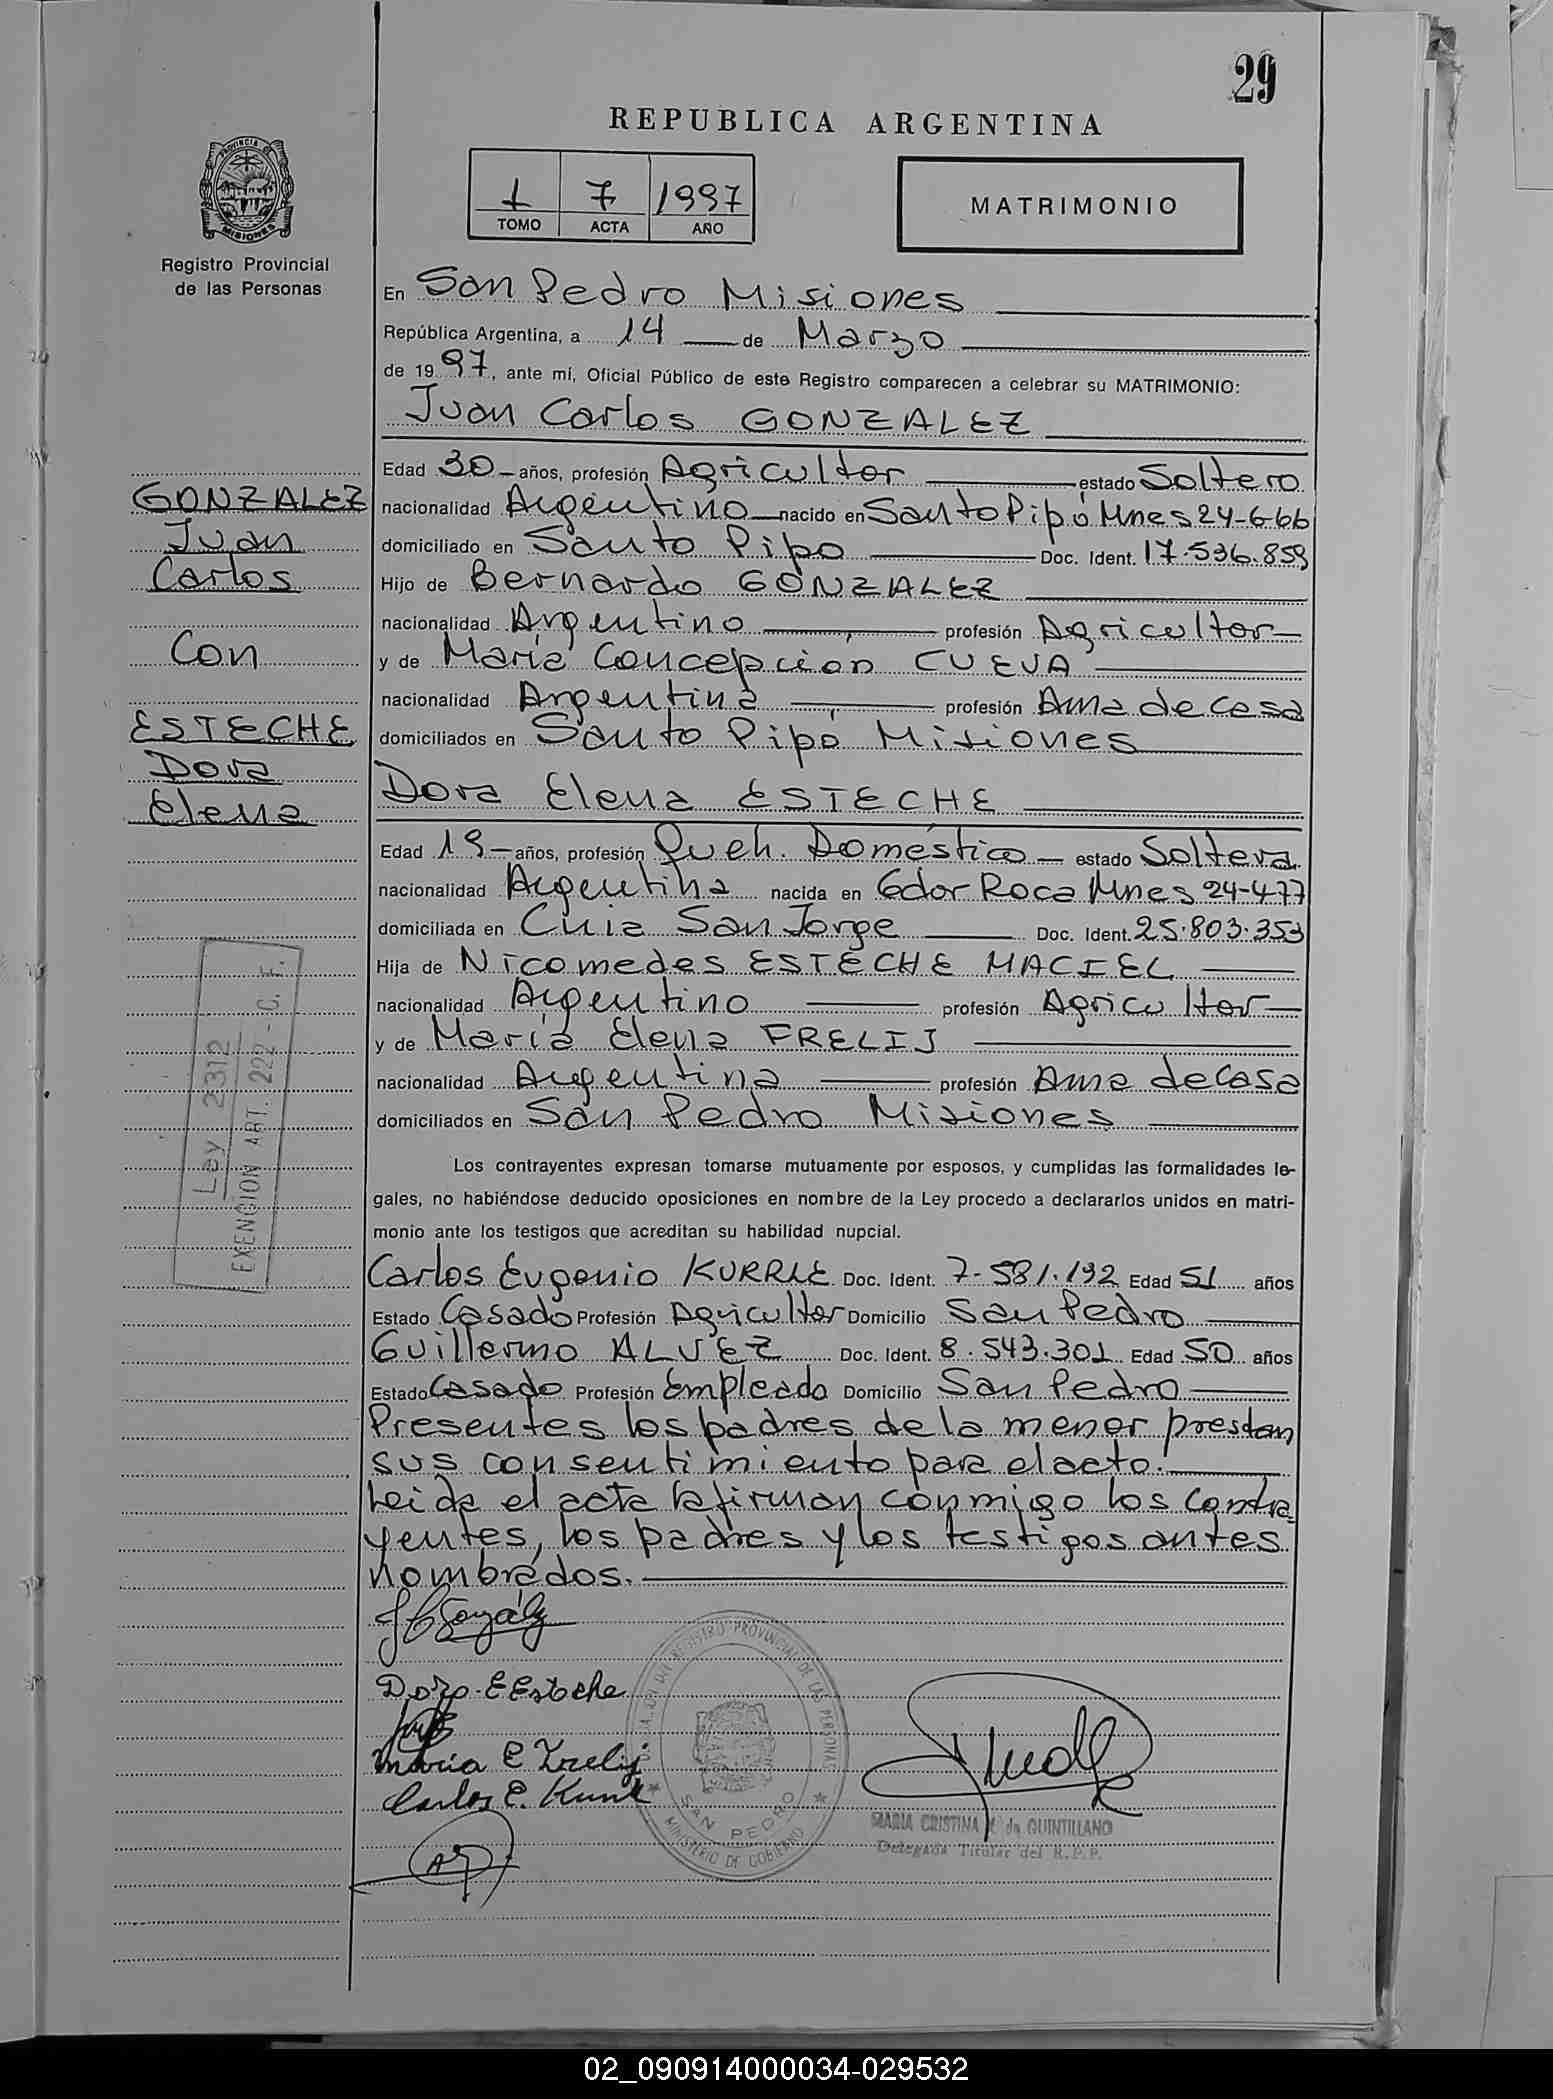 29
REPUBLICA ARGENTINA
PROVINCIA DE
MISIONES
Registro Provincial
de las Personas
1 7 1997
TOMO ACTA AÑO
MATRIMONIO
En San Pedro Misiones
República Argentina, a 14 de Marzo
de 1997, ante mí, Oficial Público de este Registro comparecen a celebrar su MATRIMONIO:
Juan Carlos GONZALEZ
Edad 30 años, profesión Agricultor estado Soltero
nacionalidad Argentino nacido en Santo Pipó Mnes 24-6-66
domiciliado en Santo Pipo Doc. Ident. 17.536.859
Hijo de Bernardo GONZALEZ
nacionalidad Argentino profesión Agricultor
y de María Concepción CUEVA
nacionalidad Argentina profesión Ama de casa
domiciliados en Santo Pipó Misiones
GONZALEZ
Juan
Carlos
Con
ESTECHE
Dora
Elena
Dora Elena ESTECHE
Edad 19 años, profesión Queh. Doméstico estado Soltera
nacionalidad Argentina nacida en Gdor Roca Mnes 24-4-77
domiciliada en Cnia San Jorge Doc. Ident. 25.803.353
Hija de Nicomedes ESTECHE MACIEL
nacionalidad Argentino profesión Agricultor
y de María Elena FRELIJ
nacionalidad Argentina profesión Ama de Casa
domiciliados en San Pedro Misiones
Ley 2312
EXENCION ART. 222 - C. F.
Los contrayentes expresan tomarse mutuamente por esposos, y cumplidas las formalidades le-
gales, no habiéndose deducido oposiciones en nombre de la Ley procedo a declararlos unidos en matri-
monio ante los testigos que acreditan su habilidad nupcial.
Carlos Eugenio KURRLE Doc. Ident. 7-581.192 Edad 51 años
Estado Casado Profesión Agricultor Domicilio San Pedro
Guillermo ALVEZ Doc. Ident. 8.543.301 Edad 50 años
Estado Casado Profesión Empleado Domicilio San Pedro
Presentes los padres de la menor prestan
sus consentimiento para el acto.
Leida el acta la firman conmigo los contra=
yentes, los padres y los testigos antes
nombrados.
Dora E Esteche
Maria E Frelij
Carlos E. Kurrle
REGISTRO PROVINCIAL DE LAS PERSONAS
SAN PEDRO
MINISTERIO DE GOBIERNO
MARIA CRISTINA de QUINTILLANO
Delegada Titular del R.P.P.
02_090914000034-029532